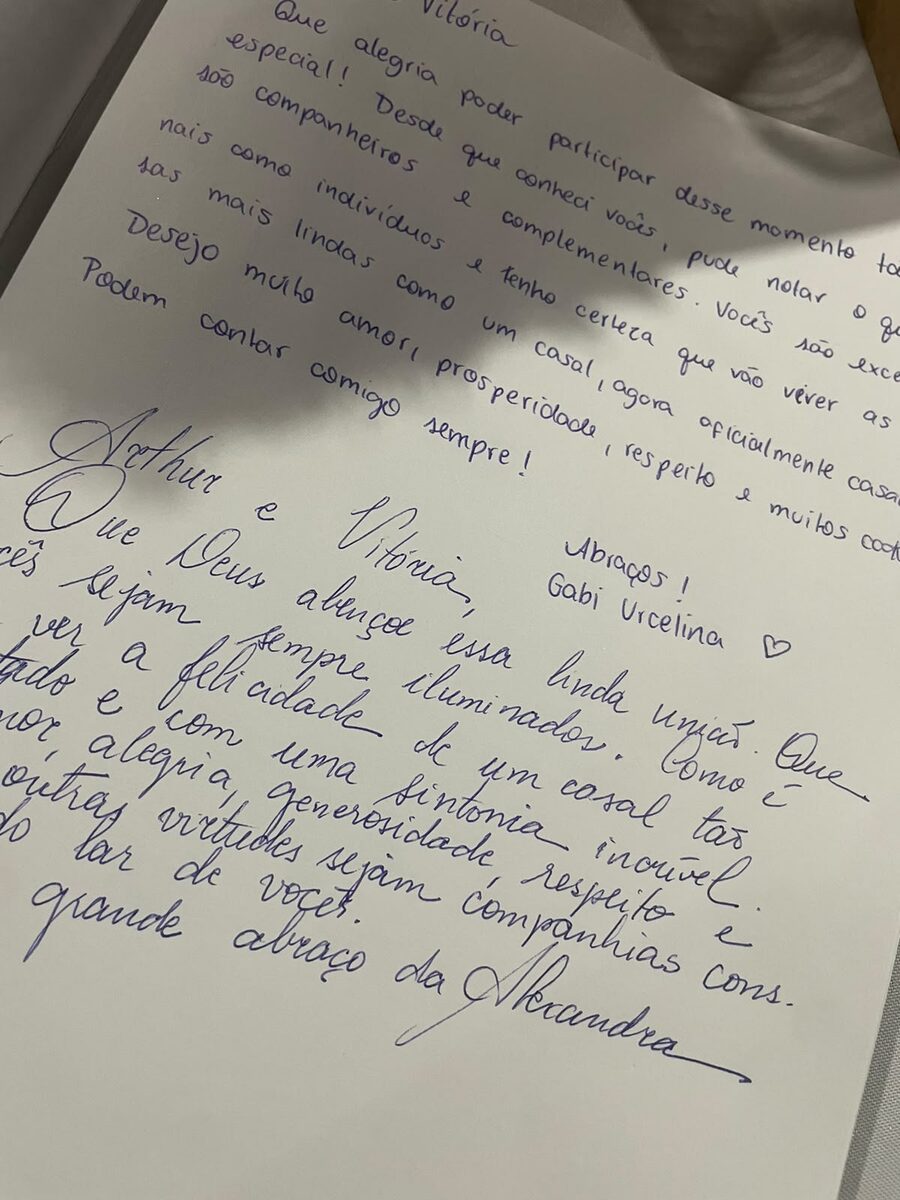 Vitória
Que alegria poder participar desse momento
especial! Desde que conheci vocês, pude notar o
são companheiros e complementares. Vocês são
nais como indivíduos e tenho certeza que vão viver as
sas mais lindas como um casal, agora oficialmente
Desejo muito amor, prosperidade, respeito e muitos
Podem contar comigo sempre!
Abraços!
Gabi Urcelina ♡
Arthur e Vitória,
Que Deus abençoe essa linda união. Que
sejam sempre iluminados. Como é
ver a felicidade de um casal tão
e com uma sintonia incrível.
alegria, generosidade, respeito e
outras virtudes sejam companhias cons.
lar de vocês.
grande abraço da Alexandra